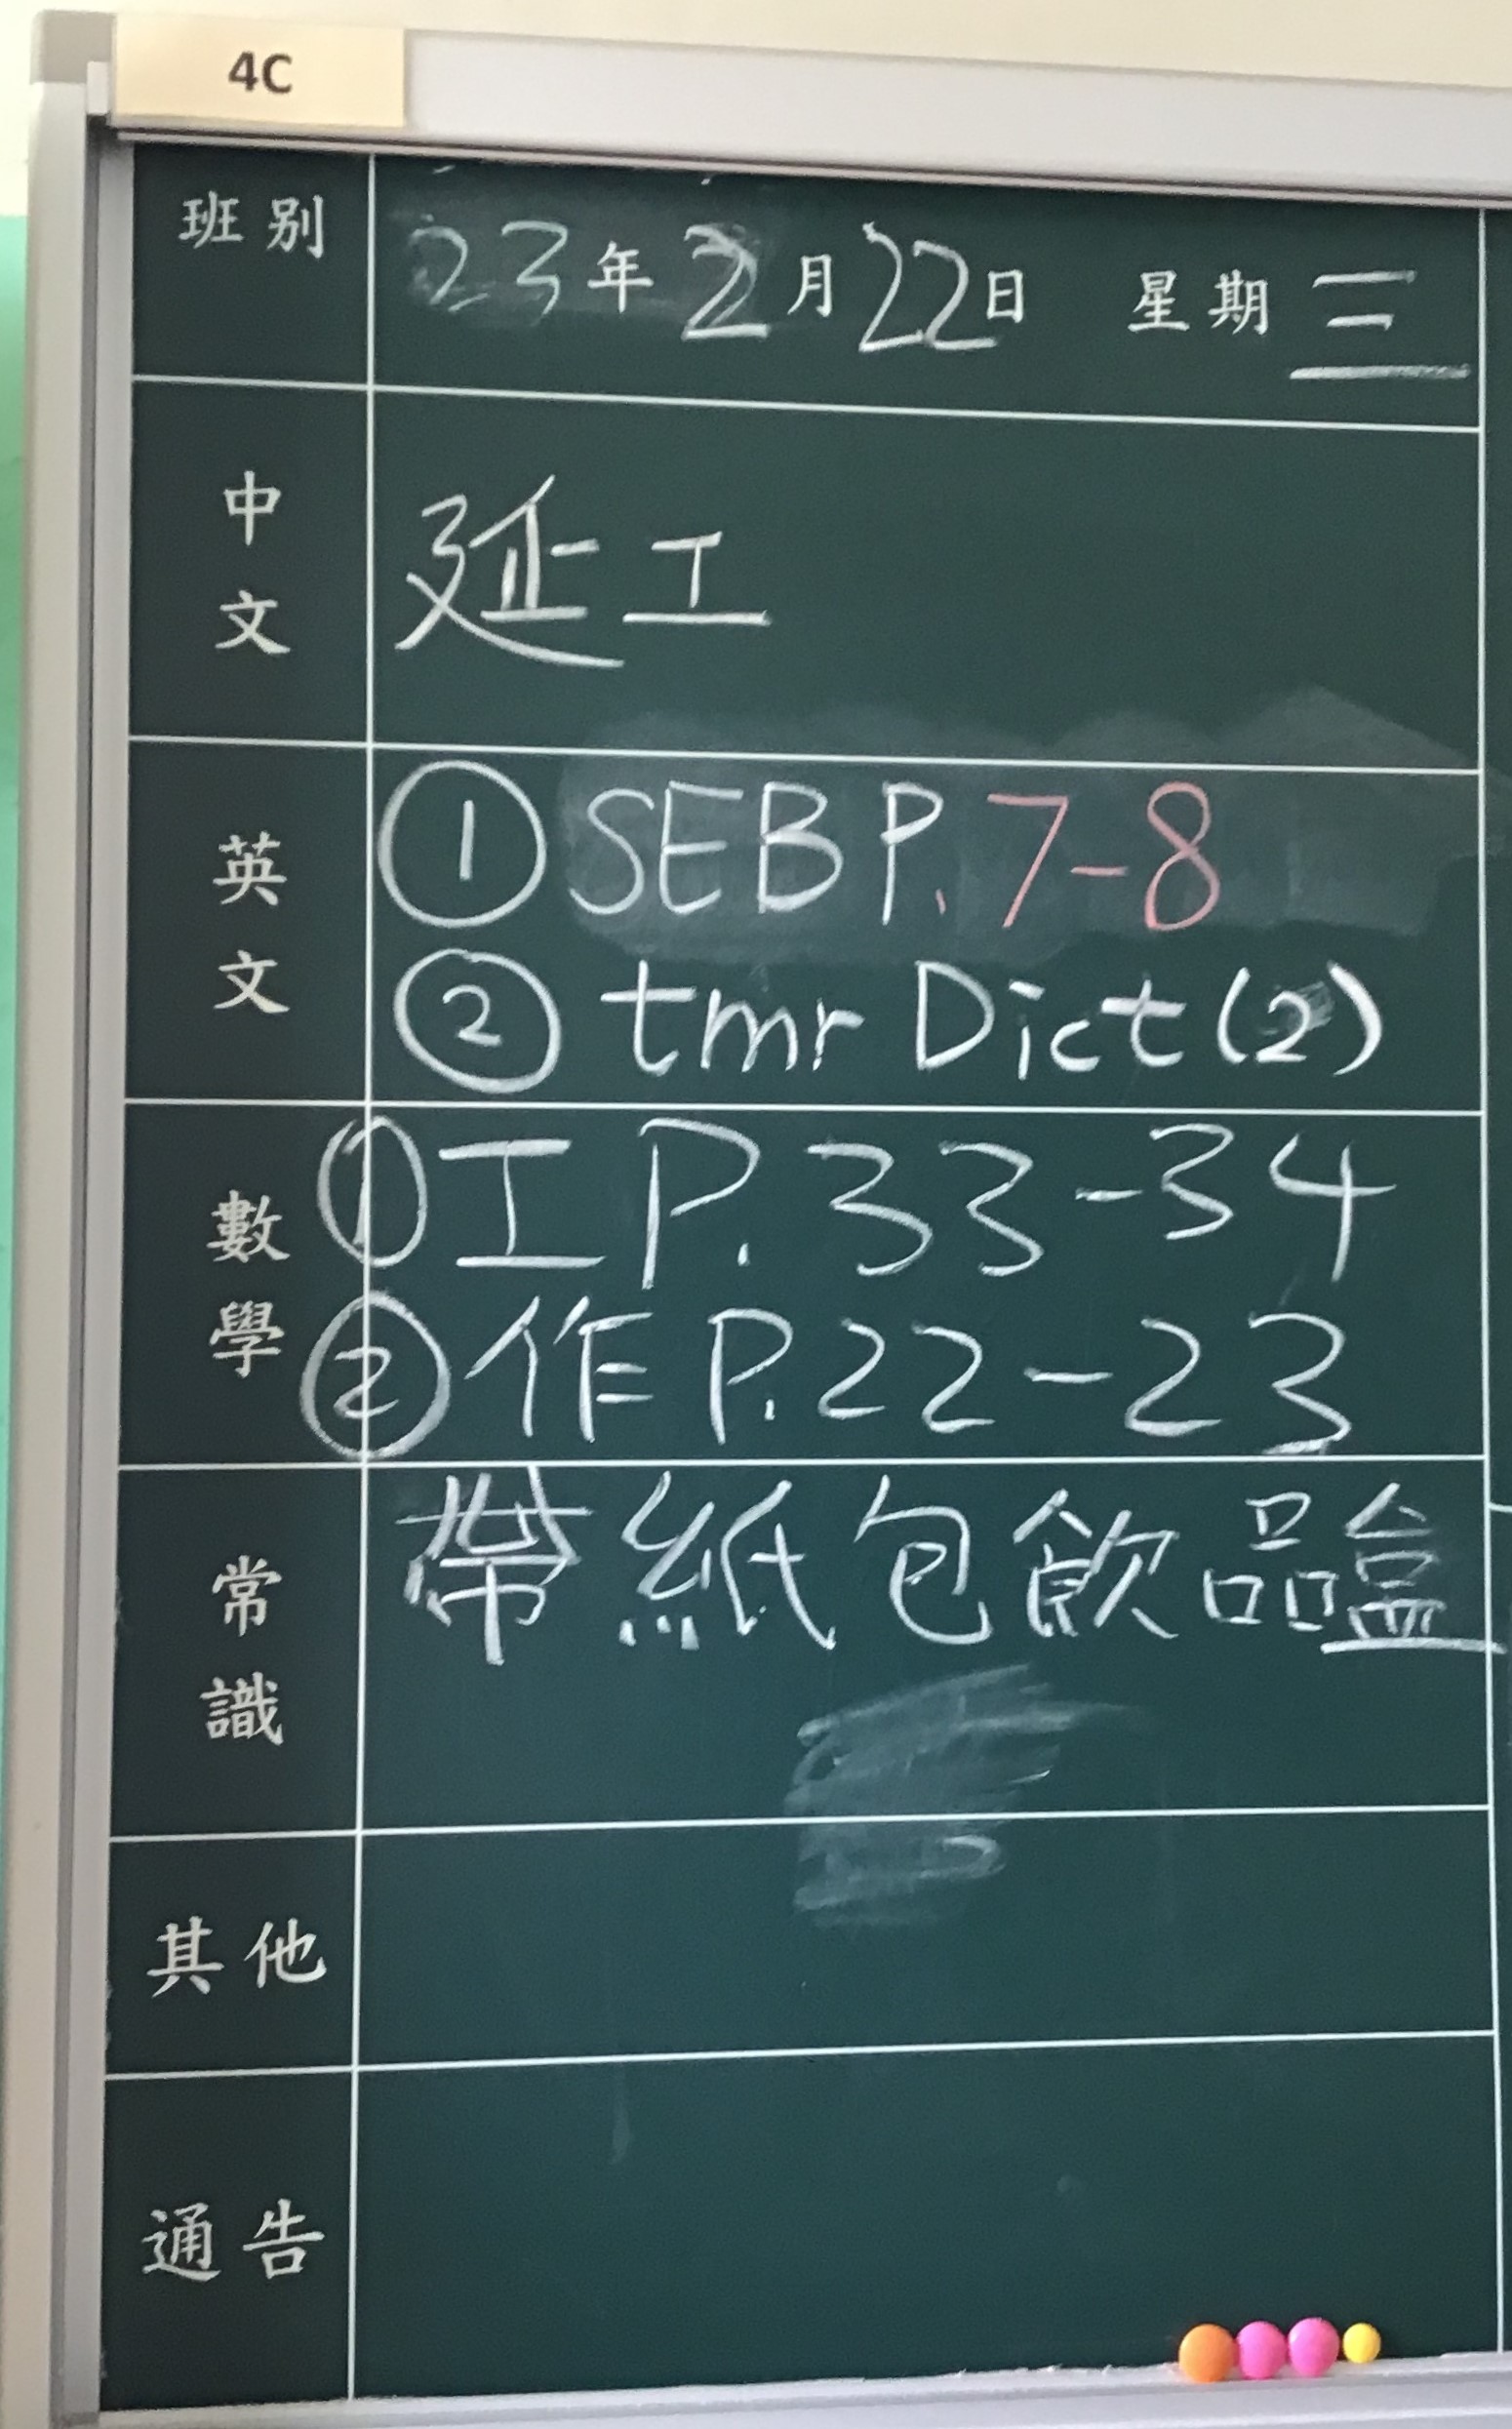 4C
班別 23年2月22日 星期三
中文 延工
英文 ① SEB P.7-8
② tmr Dict (2)
數學 ① 工 P.33-34
② 作 P.22-23
常識 帶紙包飲品盒
其他
通告